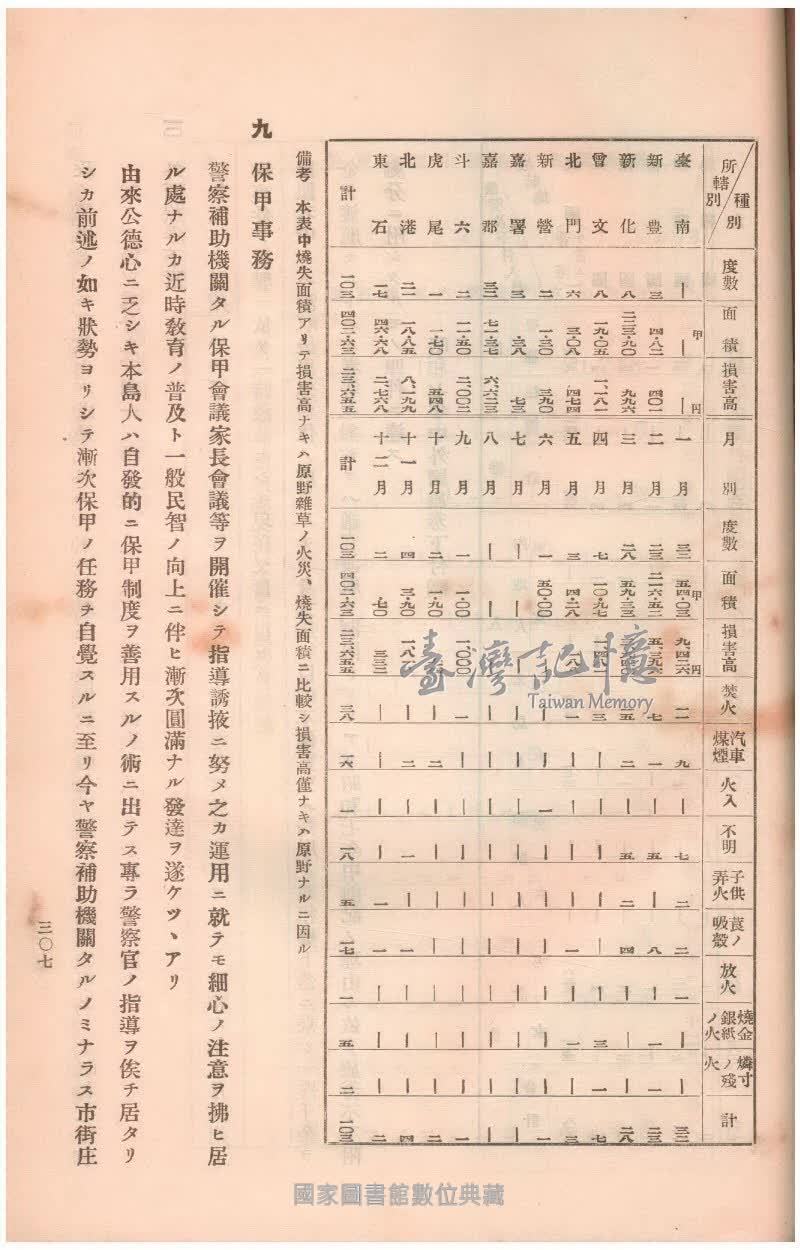 所轄別／種別 度數 面積 損害高 月別 度數 面積 損害高 焚火 汽車煤煙 火入 不明 子供弄火 莨ノ吸殼 放火 燒金銀紙ノ火 燐寸ノ殘火 計
臺南 ― 甲― 円― 一月 三二 甲五四・〇三 円九、四二六 一一 九 ― 七 二 二 一 ― ― 三二
新豐 三 四・八二 四〇一 二月 二三 二一六・五二 五、三九六 七 一 ― 五 ― 八 ― 一 ― 二三
新化 八 二三三・九〇 九九六 三月 二八 五九・三三 五 二 ― 五 二 四 ― ― ― 二八
曾文 八 一九・〇五 一、一八二 四月 七 一〇・九七 三 ― ― ― ― ― ― 三 一 七
北門 六 三・〇八 四七四 五月 三 四・二八 一 ― ― ― ― 一 ― 一 ― 三
新營 二 一・三〇 三九〇 六月 一 五〇・〇〇 ― ― 一 ― ― ― ― ― ― 一
嘉署 三 ・三八 七三 七月 ― ― ― ― ― ― ― ― ― ― ― ― ―
嘉郡 三二 七一・三七 六、六二三 八月 ― ― ― ― ― ― ― ― ― ― ― ― ―
斗六 二 一一・五〇 二、〇〇二 九月 一 一・〇〇 一 ― ― ― ― ― ― ― ― 一
虎尾 一 一・七〇 五四八 十月 二 一・九〇 ― 二 ― ― ― ― ― ― ― 二
北港 二一 一八・八五 八、一九九 十一月 四 三・九〇 ― 二 ― 一 ― 一 ― ― ― 四
東石 一七 四六・六八 二、七六八 十二月 二 ・七〇 三三二 ― ― ― ― 一 一 ― ― ― 二
計 一〇三 四〇二・六三 二三、六五五 計 一〇三 四〇二・六三 二三、六五五 三八 一六 一 一八 五 一七 一 五 二 一〇三
備考 本表中燒失面積アリテ損害高ナキハ原野雜草ノ火災、燒失面積ニ比較シ損害高僅ナキハ原野ナルニ因ル
九 保甲事務
警察補助機關タル保甲會議家長會議等ヲ開催シテ指導誘掖ニ努メ之カ運用ニ就テモ細心ノ注意ヲ拂ヒ居
ル處ナルカ近時教育ノ普及ト一般民智ノ向上ニ伴ヒ漸次圓滿ナル發達ヲ遂ケツヽアリ
由來公德心ニ乏シキ本島人ハ自發的ニ保甲制度ヲ善用スルノ術ニ出テス專ラ警察官ノ指導ヲ俟チ居タリ
シカ前述ノ如キ狀勢ヨリシテ漸次保甲ノ任務ヲ自覺スルニ至リ今ヤ警察補助機關タルノミナラス市街庄
三〇七
臺灣記憶
Taiwan Memory
國家圖書館數位典藏